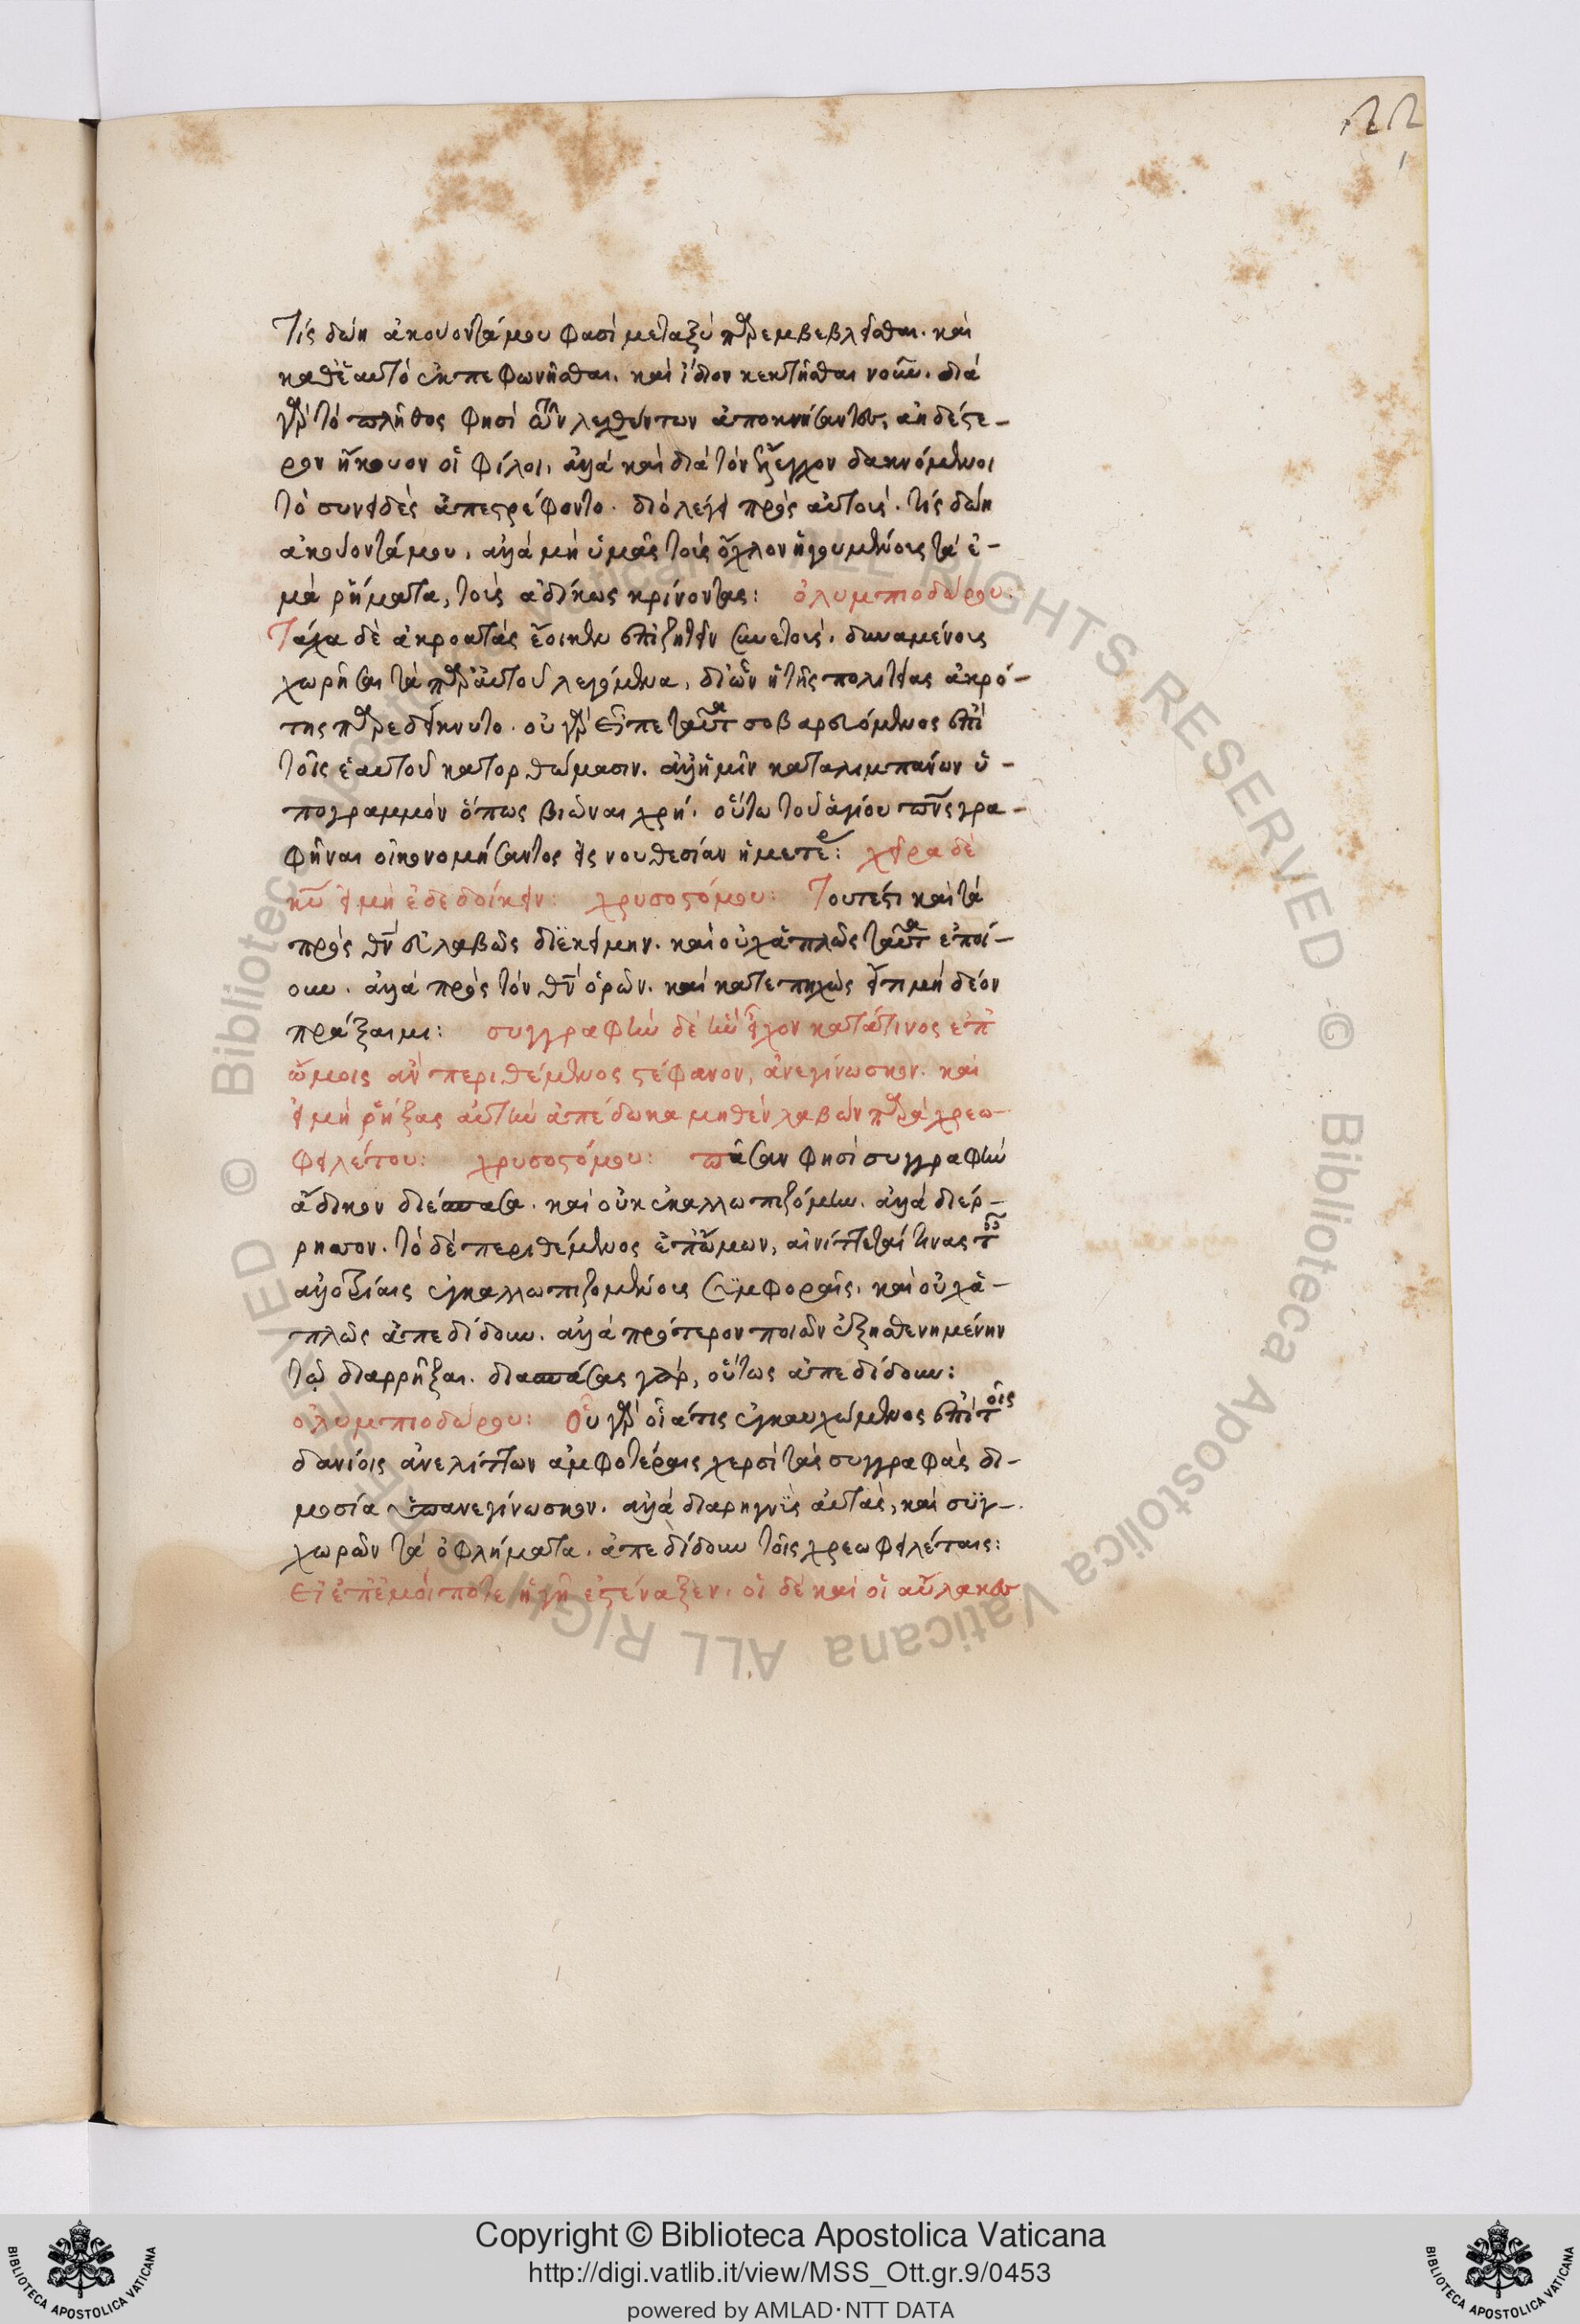 22
1
Τίς δώη ἀκούοντά μου φασὶ μεταξὺ παρεμβεβλῆσθαι. καὶ
καθ' ἑαυτὸ ἐκπεφωνῆσθαι. καὶ ἴδιον κεκτῆσθαι νοῦν. διὰ
γὰρ τὸ πλῆθος φησὶ τῶν λεχθέντων ἀποκνήσαντες, ἀηδέστε-
ρον ἤκουον οἱ φίλοι, ἀλλὰ καὶ διὰ τὸν ἔλεγχον δακνόμενοι
τὸ συνειδὸς ἀπεστρέφοντο. διὸ λέγει πρὸς αὐτούς. τίς δώη
ἀκούοντά μου, ἀλλὰ μὴ ὑμᾶς τοὺς ὄχλον ἡγουμένους τὰ ἐ-
μὰ ῥήματα, τοὺς ἀδίκως κρίνοντας: ὀλυμπιοδώρου:
Τάχα δὲ ἀκροατὰς ἔοικεν ἐπιζητεῖν συνετοὺς. δυναμένους
χωρῆσαι τὰ παρ' αὐτοῦ λεγόμενα, δι' ὧν ἡ τῆς πολιτείας ἀκρό-
της παρεδείκνυτο. οὐ γὰρ εἶπε ταῦτα σοβαρευόμενος ἐπὶ
τοῖς ἑαυτοῦ κατορθώμασιν. ἀλλ' ἡμῖν καταλιμπάνων ὑ-
πογραμμὸν ὅπως βιῶναι χρή. οὕτω τοῦ ἁγίου πνς γρα-
φῆναι οἰκονομήσαντος εἰς νουθεσίαν ἡμετέρ: χεῖρα δὲ
κυ εἰ μὴ ἐδεδοίκειν: χρυσοστόμου: Τουτέστι καὶ τὰ
πρὸς θν εὐλαβῶς διεκείμην. καὶ οὐχ ἁπλῶς ταῦτα ἐποί-
ουν. ἀλλὰ πρὸς τὸν θν ὁρῶν. καὶ κατεπτηχὼς εἴ τι μὴ δέον
πράξαιμι: συγγραφὴν δὲ ἣν εἶχον κατά τινος ἐπ'
ὤμοις ἂν περιθέμενος στέφανον, ἀνεγίνωσκον. καὶ
εἰ μὴ ῥήξας αὐτὴν ἀπέδωκα μηθὲν λαβὼν παρὰ χρεω
φειλέτου: χρυσοστόμου: πᾶσαν φησὶ συγγραφὴν
ἄδικον διέσπασα. καὶ οὐκ ἐκαλλωπιζόμην. ἀλλὰ διέρ-
ρησσον. τὸ δὲ περιθέμενος ἐπ' ὤμων, αἰνίττεταί τινας τῶν
ἀλλοτρίαις ἐγκαλλωπιζομένους συμφοραῖς. καὶ οὐχ ἁ-
πλῶς ἀπεδίδουν. ἀλλὰ πρότερον ποιῶν ἐξησθενημένην
τῷ διαρρῆξαι. διασπάσας γὰρ, οὕτως ἀπεδίδουν:
ὀλυμπιοδώρου: Οὐ γὰρ οἷά τις ἐγκαυχώμενος ἐπὶ τοῖς
δανίοις ἀνελίττων ἀμφοτέραις χερσὶ τὰς συγγραφὰς δι-
μοσία ἐπανεγίνωσκον. ἀλλὰ διαρηγνὺς αὐτὰς, καὶ συγ-
χωρῶν τὰ ὀφλήματα. ἀπεδίδουν τοῖς χρεωφειλέταις:
Εἰ ἐπ' ἐμοί ποτε ἡ γῆ ἐστέναξεν. οἱ δὲ καὶ οἱ αὔλακες
Copyright © Biblioteca Apostolica Vaticana
http://digi.vatlib.it/view/MSS_Ott.gr.9/0453
powered by AMLAD · NTT DATA
BIBLIOTECA APOSTOLICA VATICANA
BIBLIOTECA APOSTOLICA VATICANA
© Biblioteca Apostolica Vaticana ALL RIGHTS RESERVED © Biblioteca Apostolica Vaticana ALL RIGHTS RESERVED